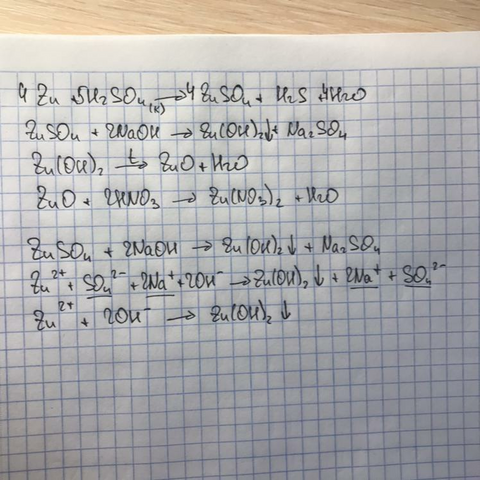 4 Zn + 5H2SO4(к) → 4 ZnSO4 + H2S + 4H2O
ZnSO4 + 2NaOH → Zn(OH)2↓ + Na2SO4
Zn(OH)2 t→ ZnO + H2O
ZnO + 2HNO3 → Zn(NO3)2 + H2O
ZnSO4 + 2NaOH → Zn(OH)2↓ + Na2SO4
Zn²⁺ + SO4²⁻ + 2Na⁺ + 2OH⁻ → Zn(OH)2↓ + 2Na⁺ + SO4²⁻
Zn²⁺ + 2OH⁻ → Zn(OH)2↓